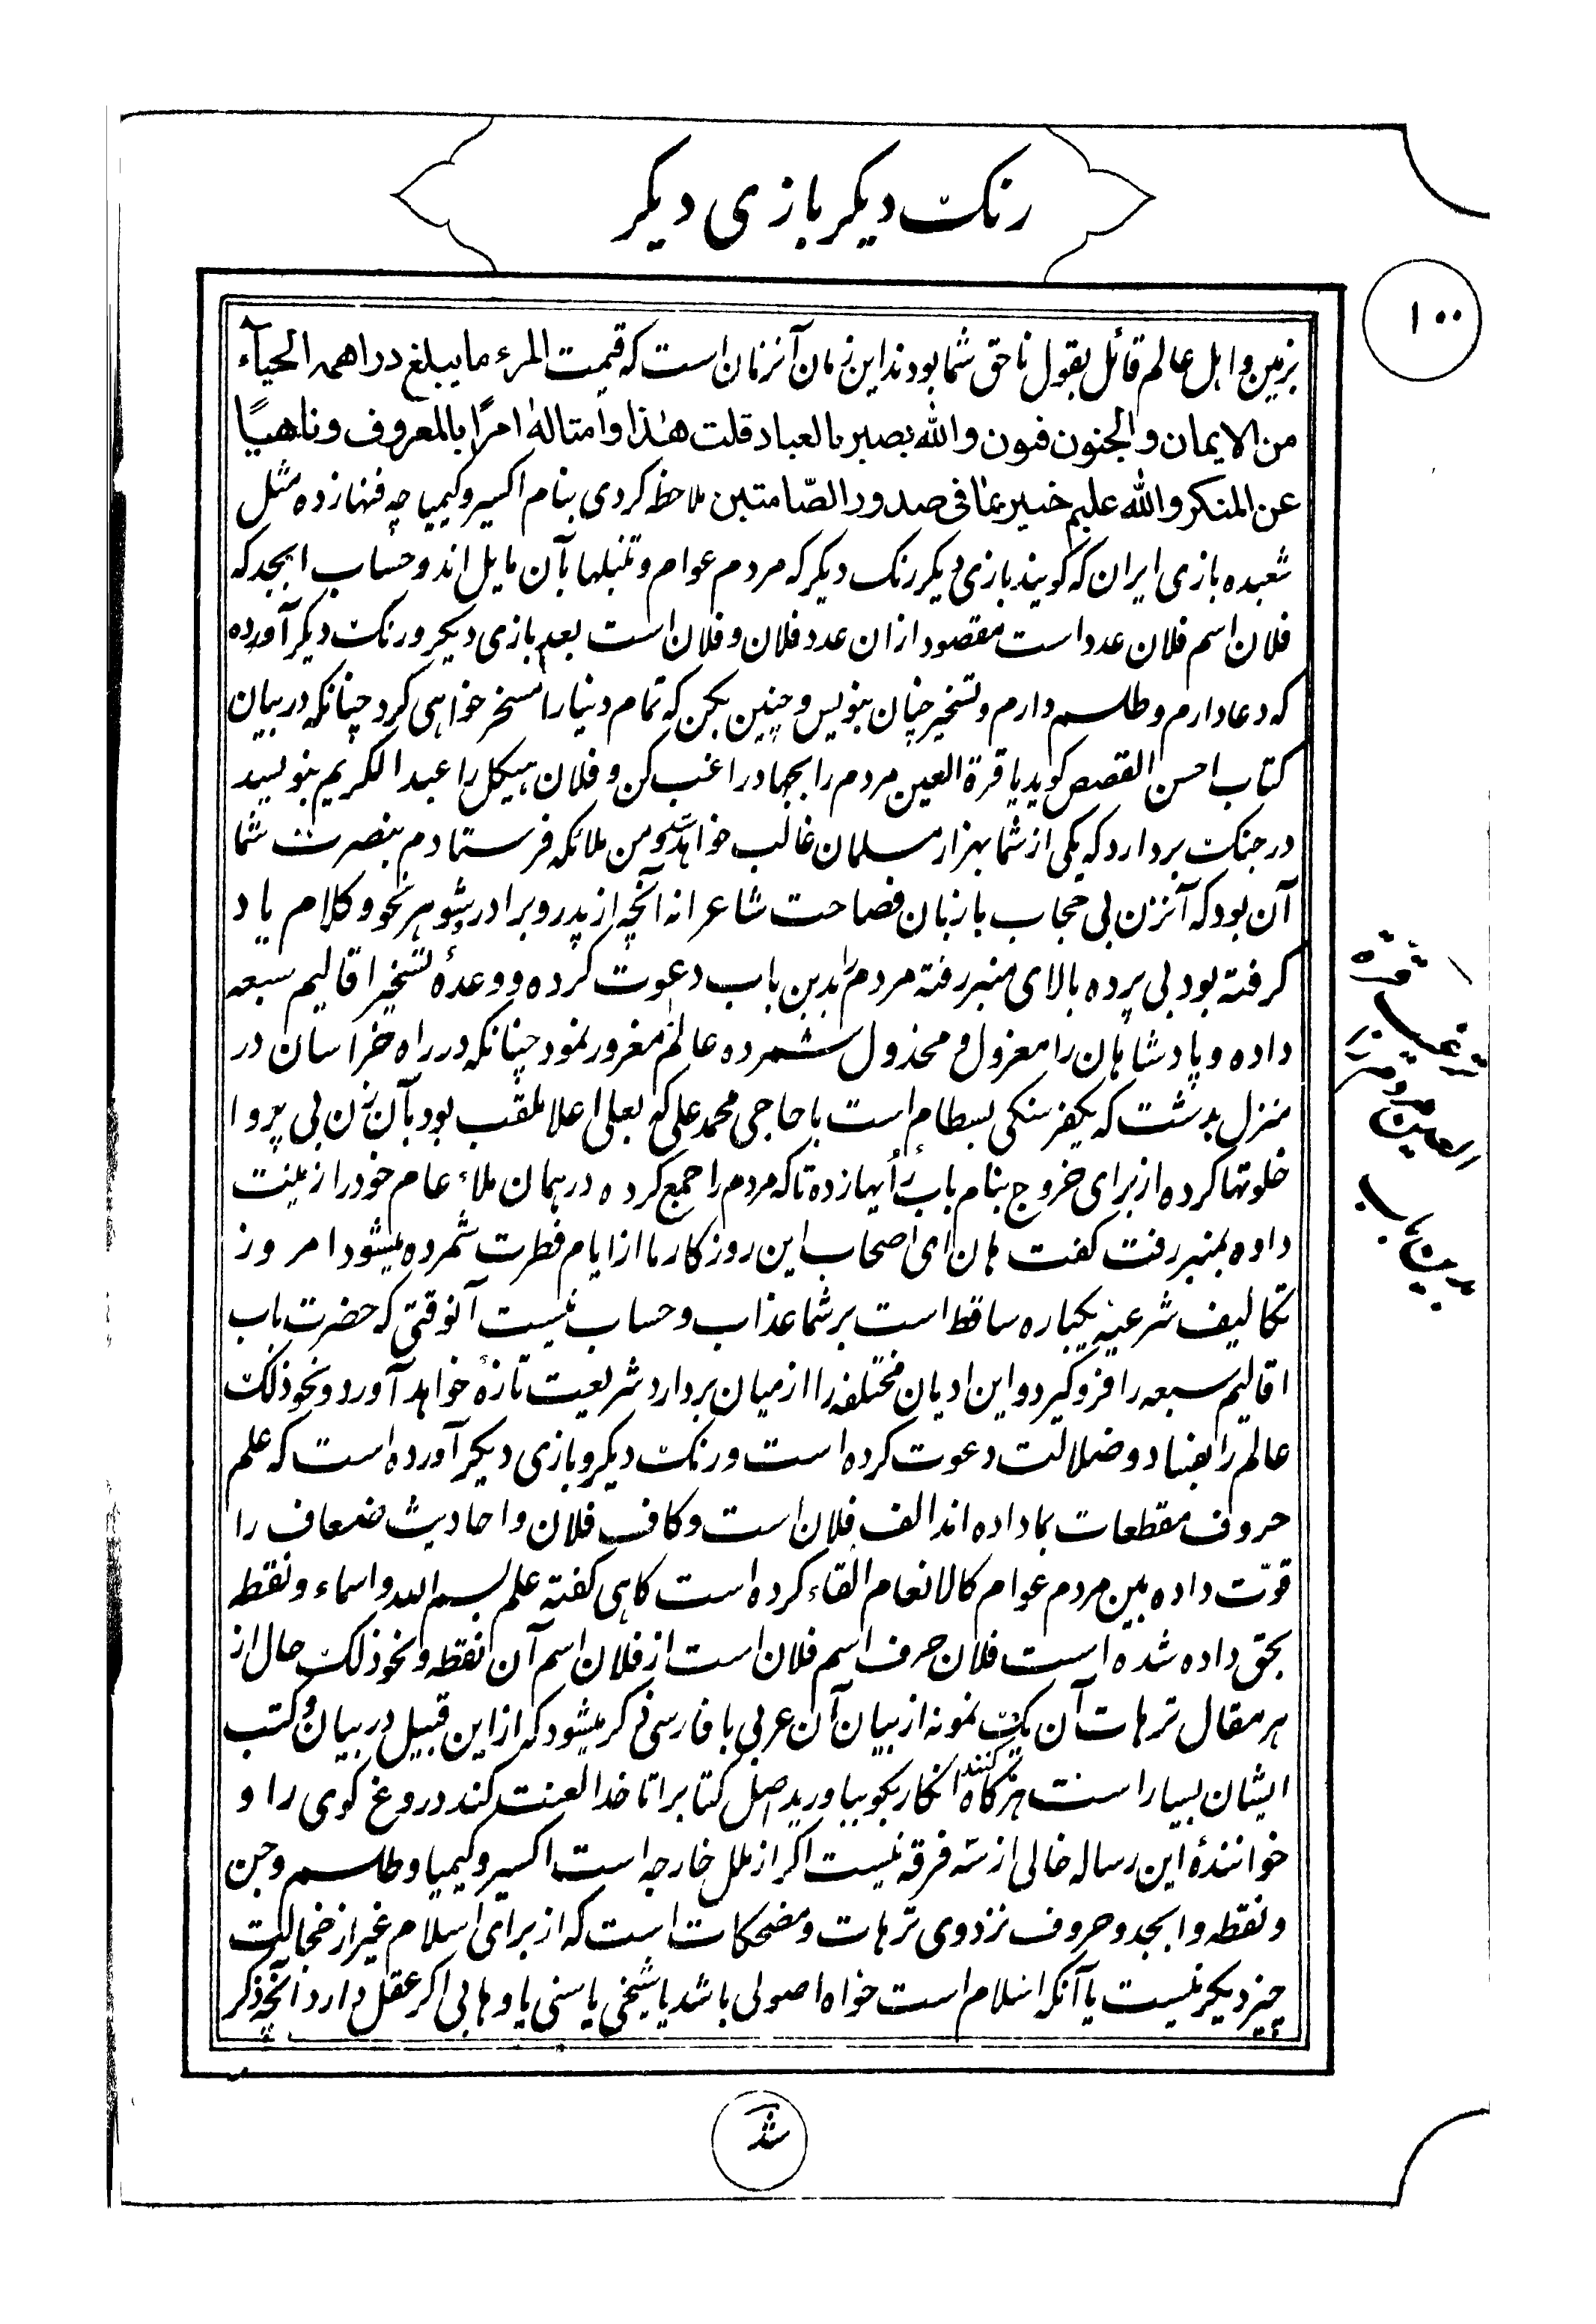 رنک دیکر بازی دیکر
۱۰۰
بزمین و اهل عالم قائل بقول ناحق شما بودند این زمان آنزمان است که قیمت المرء ما یبلغ دراهمه الحیآء
من الایمان والجنون فنون والله بصیر بالعباد قلت هذا وامثاله امرًا بالمعروف وناهیًا
عن المنکر والله علیم خبیر بما فی صدور الصّامتین ملاحظه کردی بنام اکسیر وکیمیا چه فنها زده مثل
شعبده بازی ایران که کویند بازی دیکر رنک دیکر که مردم عوام و تنبلها بآن مایل اند وحساب ابجد که
فلان اسم فلان عدد است مقصود ازان عدد فلان و فلان است بعد بازی دیکر ورنک دیکر آورده
که دعا دارم و طلسم دارم و تسخیر چنان بنویس و چنین بکن که تمام دنیا را مسخر خواهی کرد چنانکه در بیان
کتاب احسن القصص کوید یا قرة العین مردم را بجهاد راغب کن و فلان هیکل را عبد الکریم بنویسد
در جنک بردارد که یکی از شما بهزار مسلمان غالب خواهد شد ومن ملائکه فرستادم بنصرت شما
آن بود که آنزن بی حجاب با زبان فصاحت شاعرانه آنچه از پدر و برادر و شوهر نحو و کلام یاد
کرفته بود بی پرده بالای منبر رفته مردم را بدین باب دعوت کرده و وعدهٔ تسخیر اقالیم سبعه
داده و پادشاهان را معزول و مخذول شمرده عالم مغرور نمود چنانکه در راه خراسان در
منزل بدشت که یکفرسنکی بسطام است با حاجی محمد علی که بعلی اعلا ملقب بود بآن زن بی پروا
خلوتها کرده از برای خروج بنام باب رأیها زده تا که مردم را جمع کرده در همان ملاء عام خود را زینت
داده بمنبر رفت کفت هان ای اصحاب این روزکار ما از ایام فطرت شمرده میشود امروز
تکالیف شرعیه یکباره ساقط است بر شما عذاب و حساب نیست آنوقتی که حضرت باب
اقالیم سبعه را فرو کیرد و این ادیان مختلفه را از میان بردارد شریعت تازهٔ خواهد آورد ونحو ذلک
عالم را بفساد و ضلالت دعوت کرده است ورنک دیکر و بازی دیکر آورده است که علم
حروف مقطعات بما داده اند الف فلان است و کاف فلان و احادیث ضعاف را
قوّت داده بین مردم عوام کالانعام القاء کرده است کاهی کفته علم بسم الله و اسماء و نقطه
بحق داده شده است فلان حرف اسم فلان است از فلان اسم آن نقطه ونحو ذلک حال از
هر مقال ترهات آن یک نمونه از بیان آن عربی با فارسی ذکر میشود که از این قبیل در بیان و کتب
ایشان بسیار است هرکاه انکار کنند بکو بیاورید اصل کتابرا تا خدا لعنت کند دروغ کوی را و
خوانندهٔ این رساله خالی از سه فرقه نیست اکر از ملل خارجه است اکسیر و کیمیا و طلسم و جن
و نقطه و ابجد و حروف نزد وی ترّهات و مضحکات است که از برای اسلام غیر از خجالت
چیز دیکر نیست یا آنکه اسلام است خواه اصولی باشد یا شیخی یا سنی یا وهابی اکر عقل دارد آنچه ذکر
قرة
العین
منبر
شد